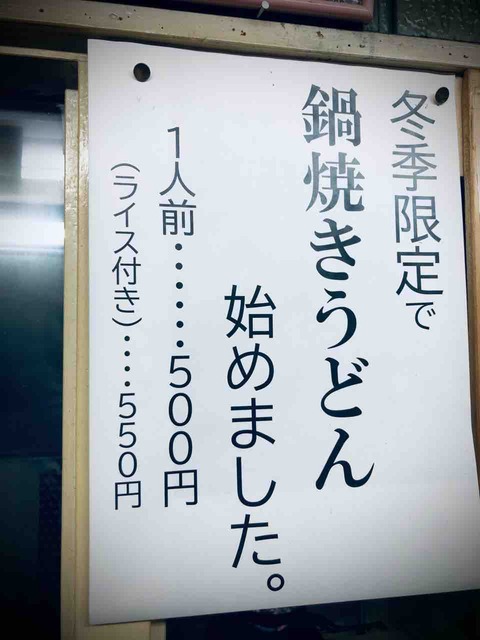 冬季限定で
鍋焼きうどん
始めました。
1人前・・・・・・500円
（ライス付き）・・・・550円